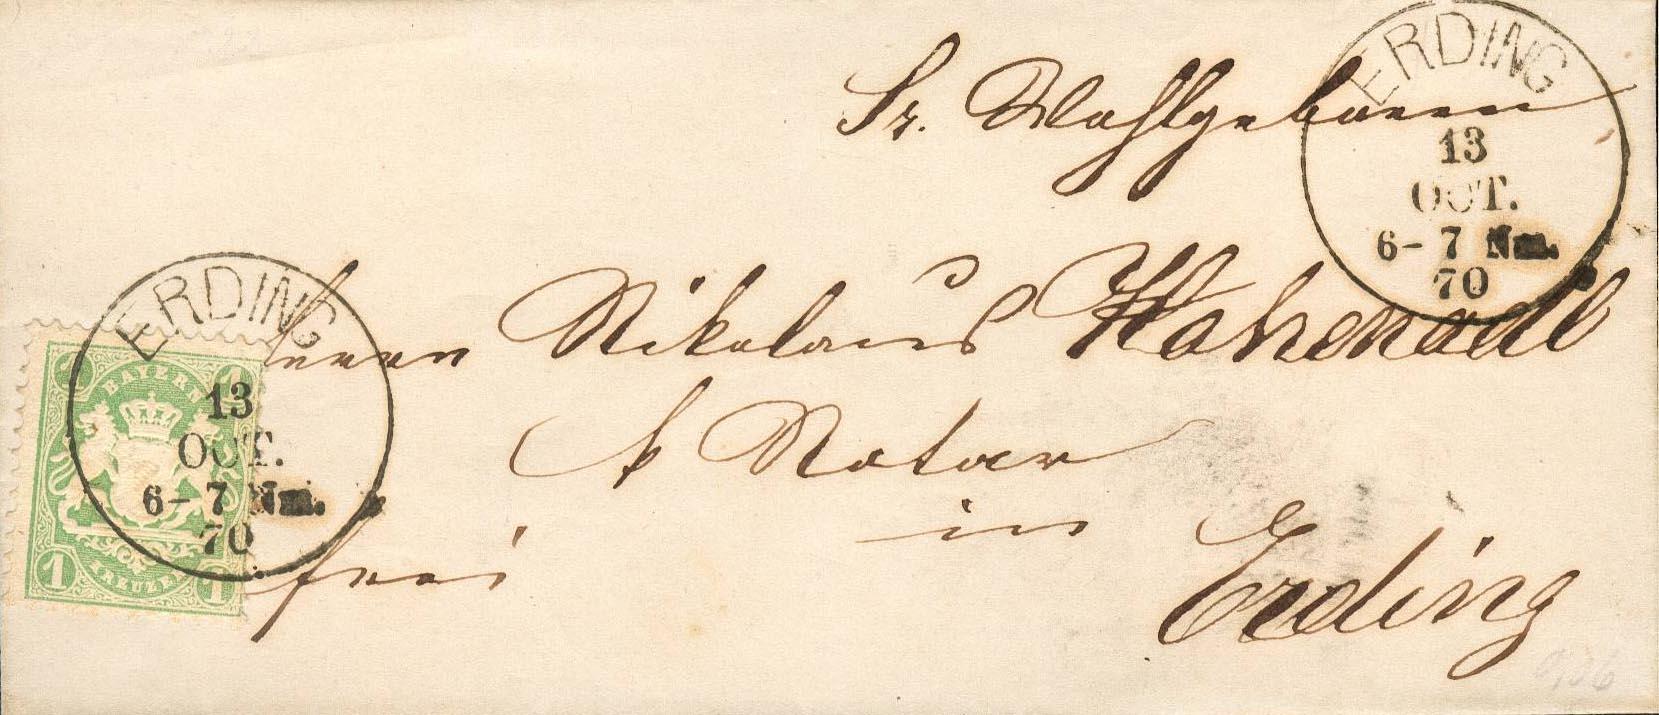 ERDING
13
OCT.
6-7 Nm.
70
Sr. Wohlgeboren
Herrn Nikolaus
k Notar
in
Erding
frei
ERDING
13
OCT.
6-7 Nm.
70
1 1
BAYERN
KREUZER
1 1